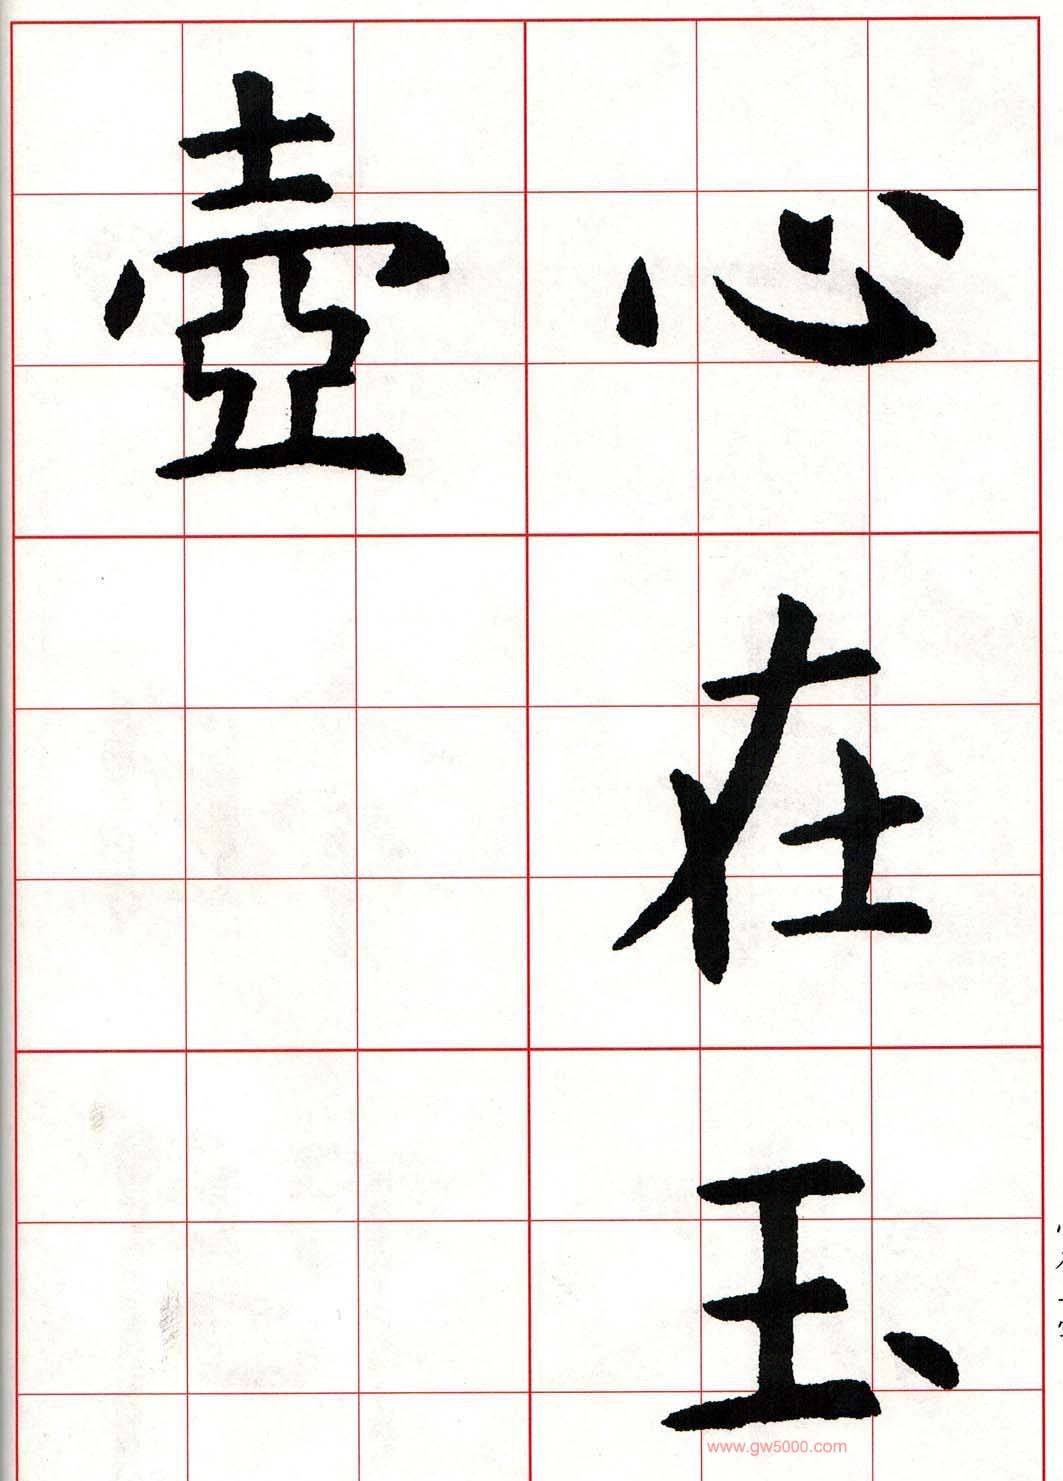 心在玉
壺
www.gw5000.com